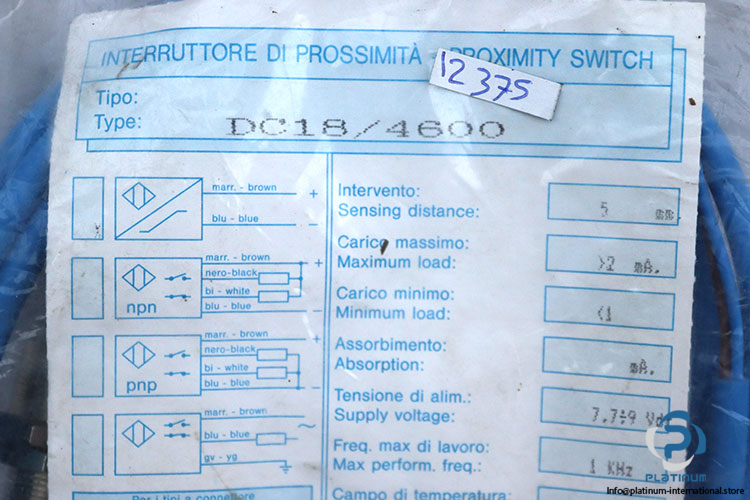 INTERRUTTORE DI PROSSIMITÀ - PROXIMITY SWITCH
12375
Tipo:
Type: DC18/4600
marr. - brown +
blu - blue -
Intervento:
Sensing distance: 5 mm.
marr. - brown +
nero-black
bi - white
blu - blue -
npn
Carico massimo:
Maximum load: >2 mA.
Carico minimo:
Minimum load: <1
marr. - brown +
nero-black
bi - white
blu - blue -
pnp
Assorbimento:
Absorption: mA.
Tensione di alim.:
Supply voltage: 7.7÷9 Vdc
marr. - brown
blu - blue ~
gv - yg
Freq. max di lavoro:
Max perform. freq.: 1 KHz
Per i tipi a connettore
Campo di temperatura:
PLATINUM
Info@platinum-international.store